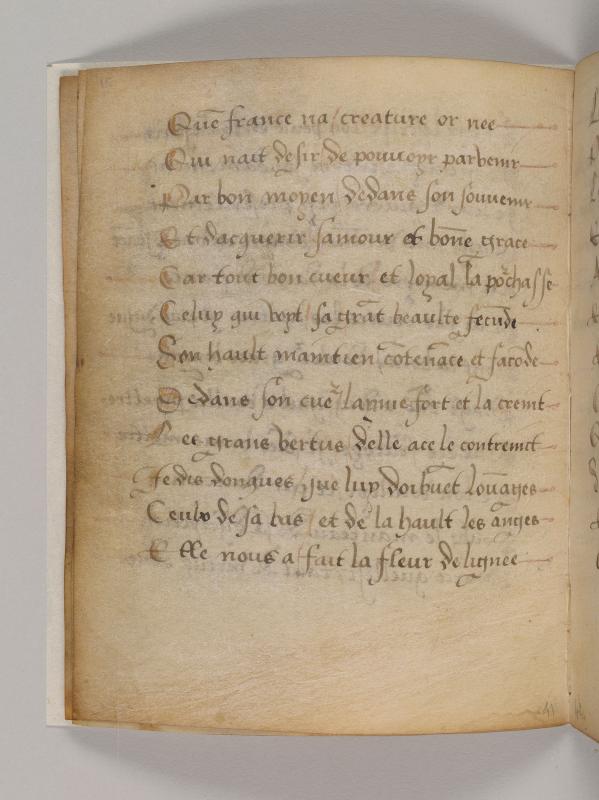 Quē france na / creature or nee
Qui nait desir de pouuoyr parvenir
Par bon moyen dedans son souuenir
Et dacquerir samour et bōne grace
Car tout bon cueur et loyal la pōchasse
Celuy qui voyt / sa grāt beaulte fecūde
Son hault maintien cōtenāce et facōde
Dedans son cue² layme fort et la creint
Les grans vertus delle ace le contreinct
Je dis donques / que luy doibuēt louāges
Ceulx de sa bas / et de la hault les anges
Elle nous a / fait la fleur de lignee
41